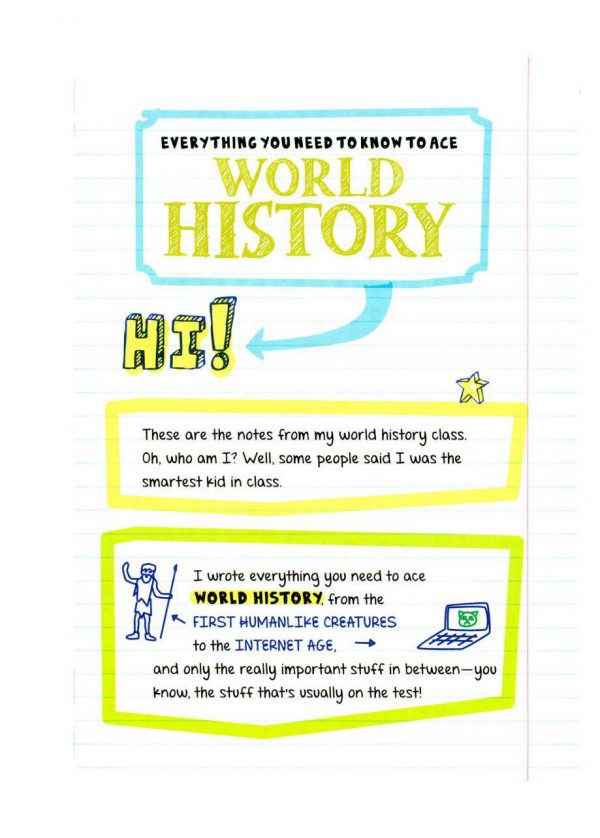 EVERYTHING YOU NEED TO KNOW TO ACE
WORLD
HISTORY
HI!
These are the notes from my world history class.
Oh, who am I? Well, some people said I was the
smartest kid in class.
I wrote everything you need to ace
WORLD HISTORY, from the
FIRST HUMANLIKE CREATURES
to the INTERNET AGE,
and only the really important stuff in between—you
know, the stuff that's usually on the test!